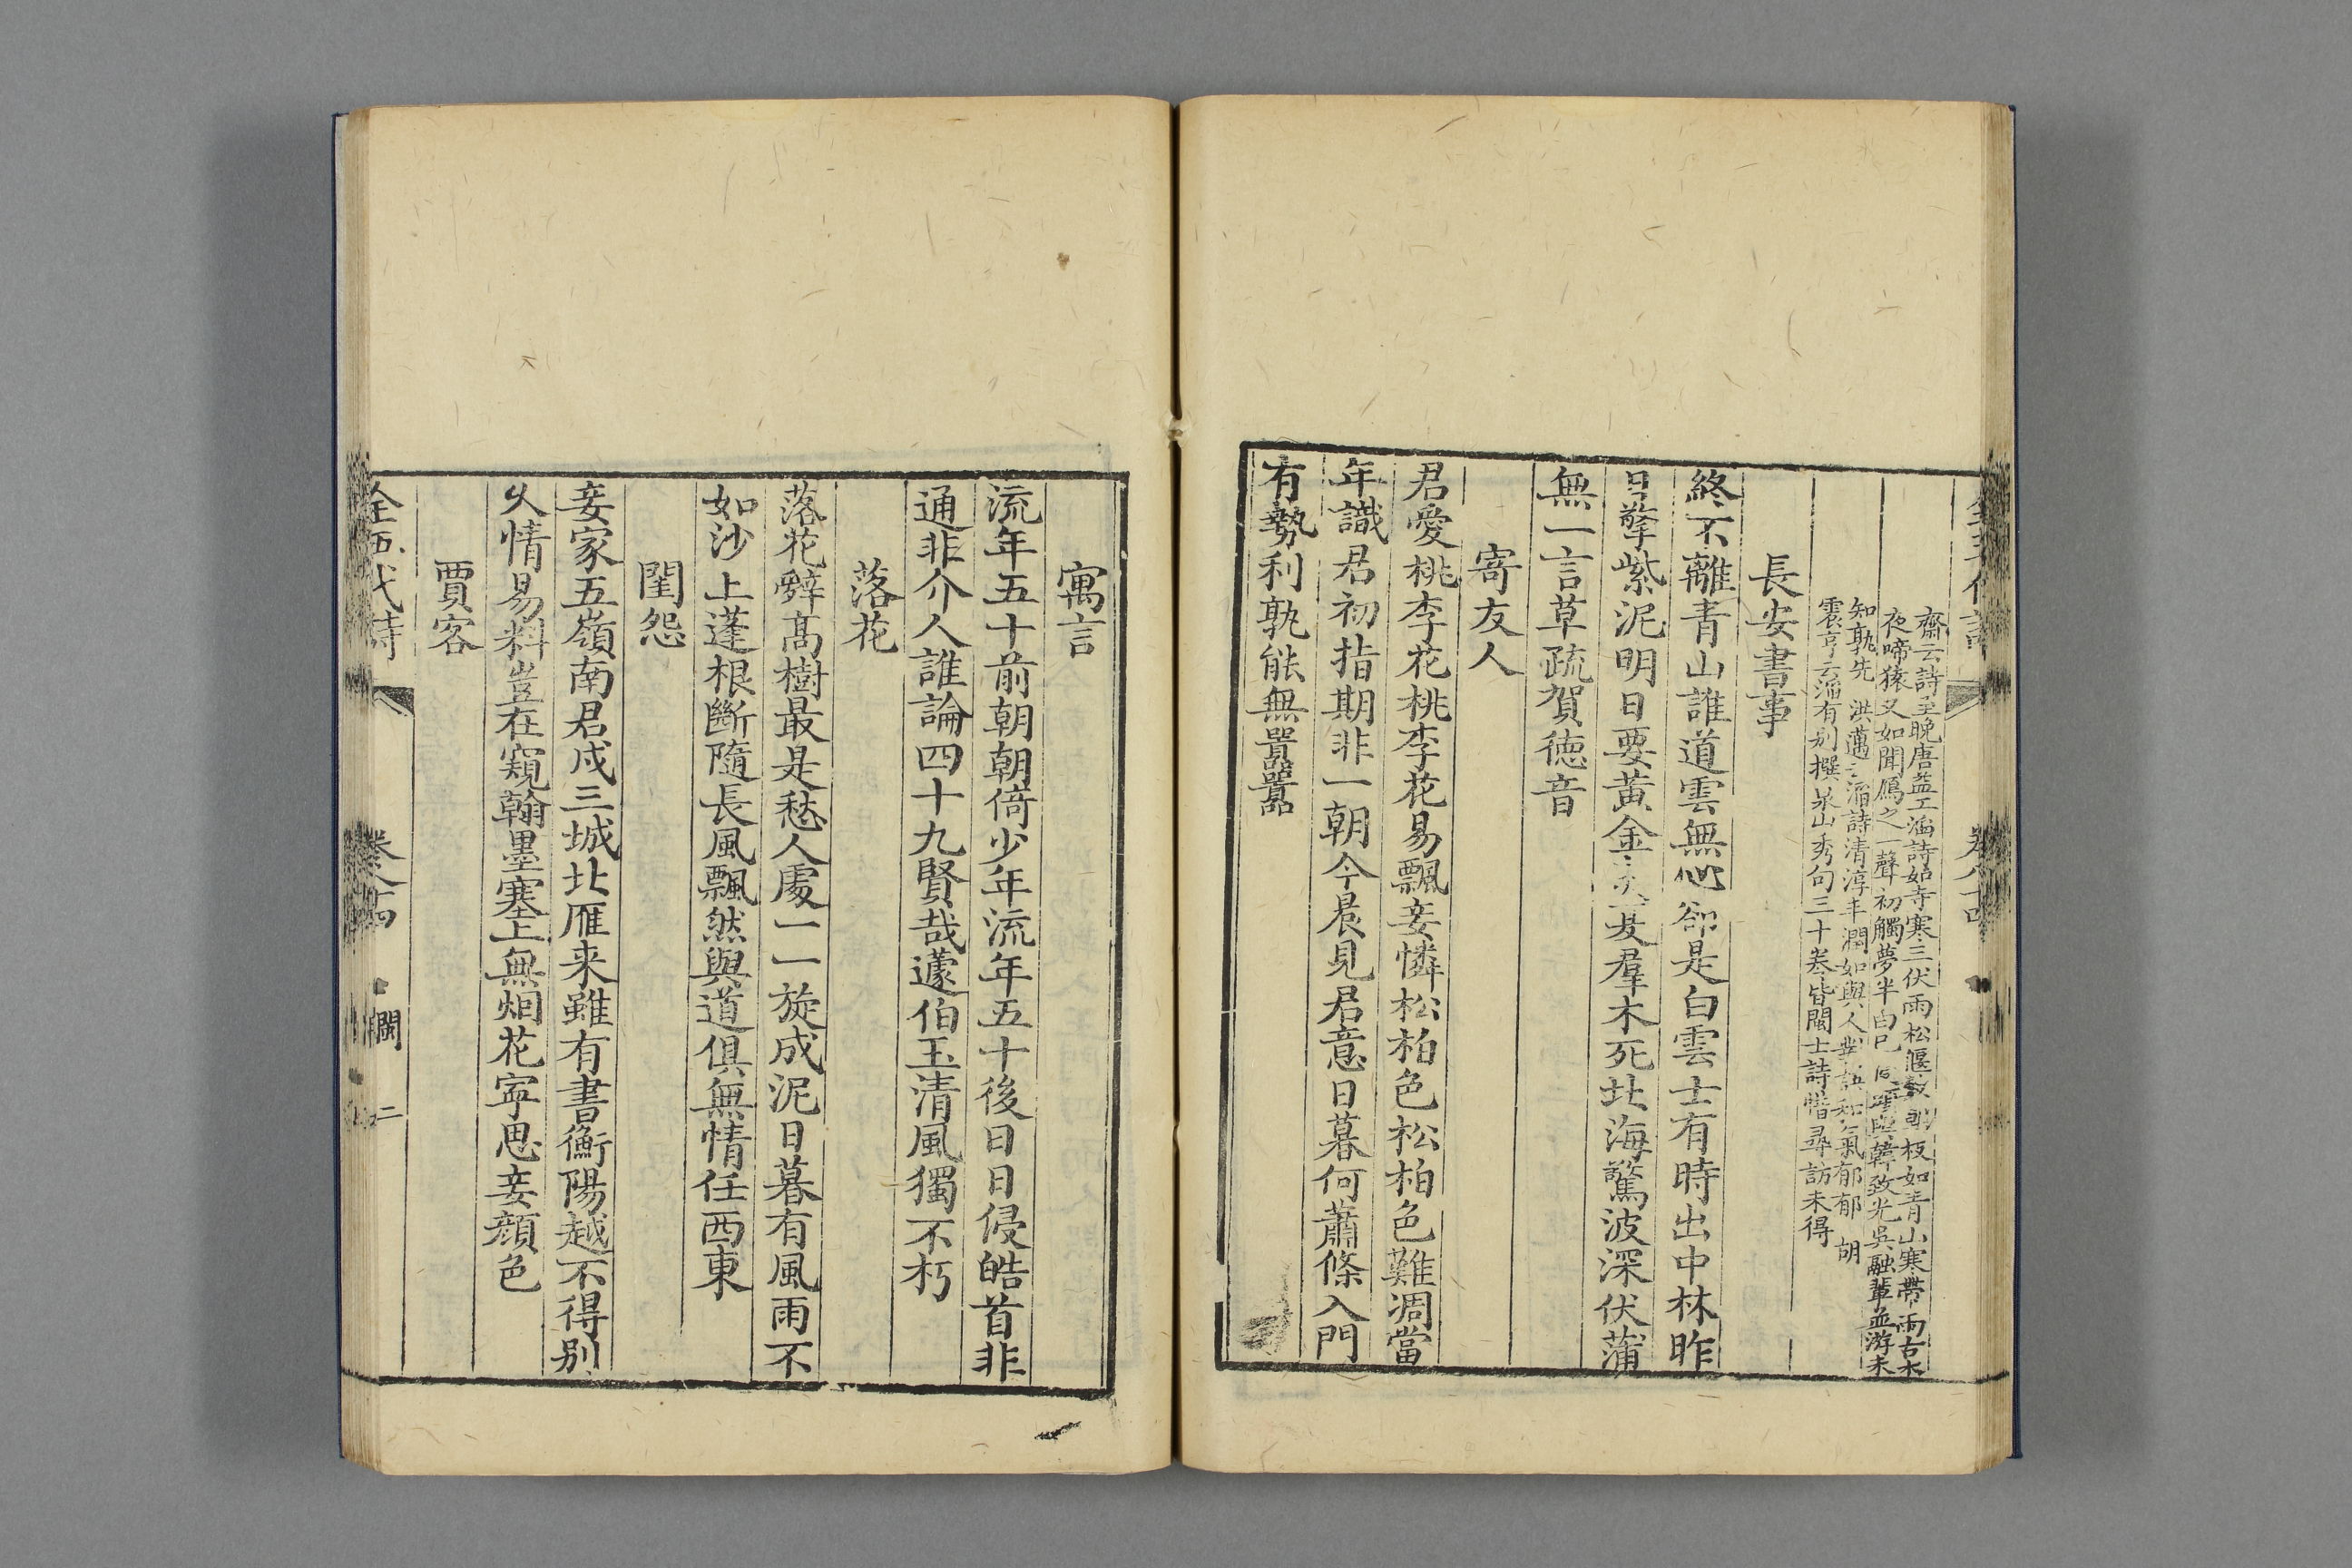 齋云詩至晚唐益工滔詩如寺寒三伏雨松偃數朝枝如青山寒帶雨古木
夜啼猿又如聞鴈之一聲初觸夢半白已同韓致光吳融輩並游未
知孰先 洪邁云滔詩清淳丰潤如與人對語和氣郁郁 胡
震亨云滔有别撰泉山秀句三十卷皆閩士詩惜尋訪未得
長安書事
終不離青山誰道雲無心卻是白雲士有時出中林昨
日擎紫泥明日要黃金 羣木死北海驚波深伏蒲
無一言草疏賀德音
寄友人
君愛桃李花桃李花易飄妾憐松柏色松柏色難凋當
年識君初指期非一朝今晨見君意日暮何蕭條入門
有勢利孰能無嚣嚣
寓言
流年五十前朝朝倚少年流年五十後日日侵皓首非
通非介人誰論四十九賢哉蘧伯玉清風獨不朽
落花
落花辭髙樹最是愁人處一一旋成泥日暮有風雨不
如沙上蓬根斷隨長風飄然與道俱無情任西東
閨怨
妾家五嶺南君戍三城北雁来雖有書衡陽越不得别
久情易料豈在窺翰墨塞上無烟花寧思妾顔色
賈客
全五代詩 卷八十四 閩 二